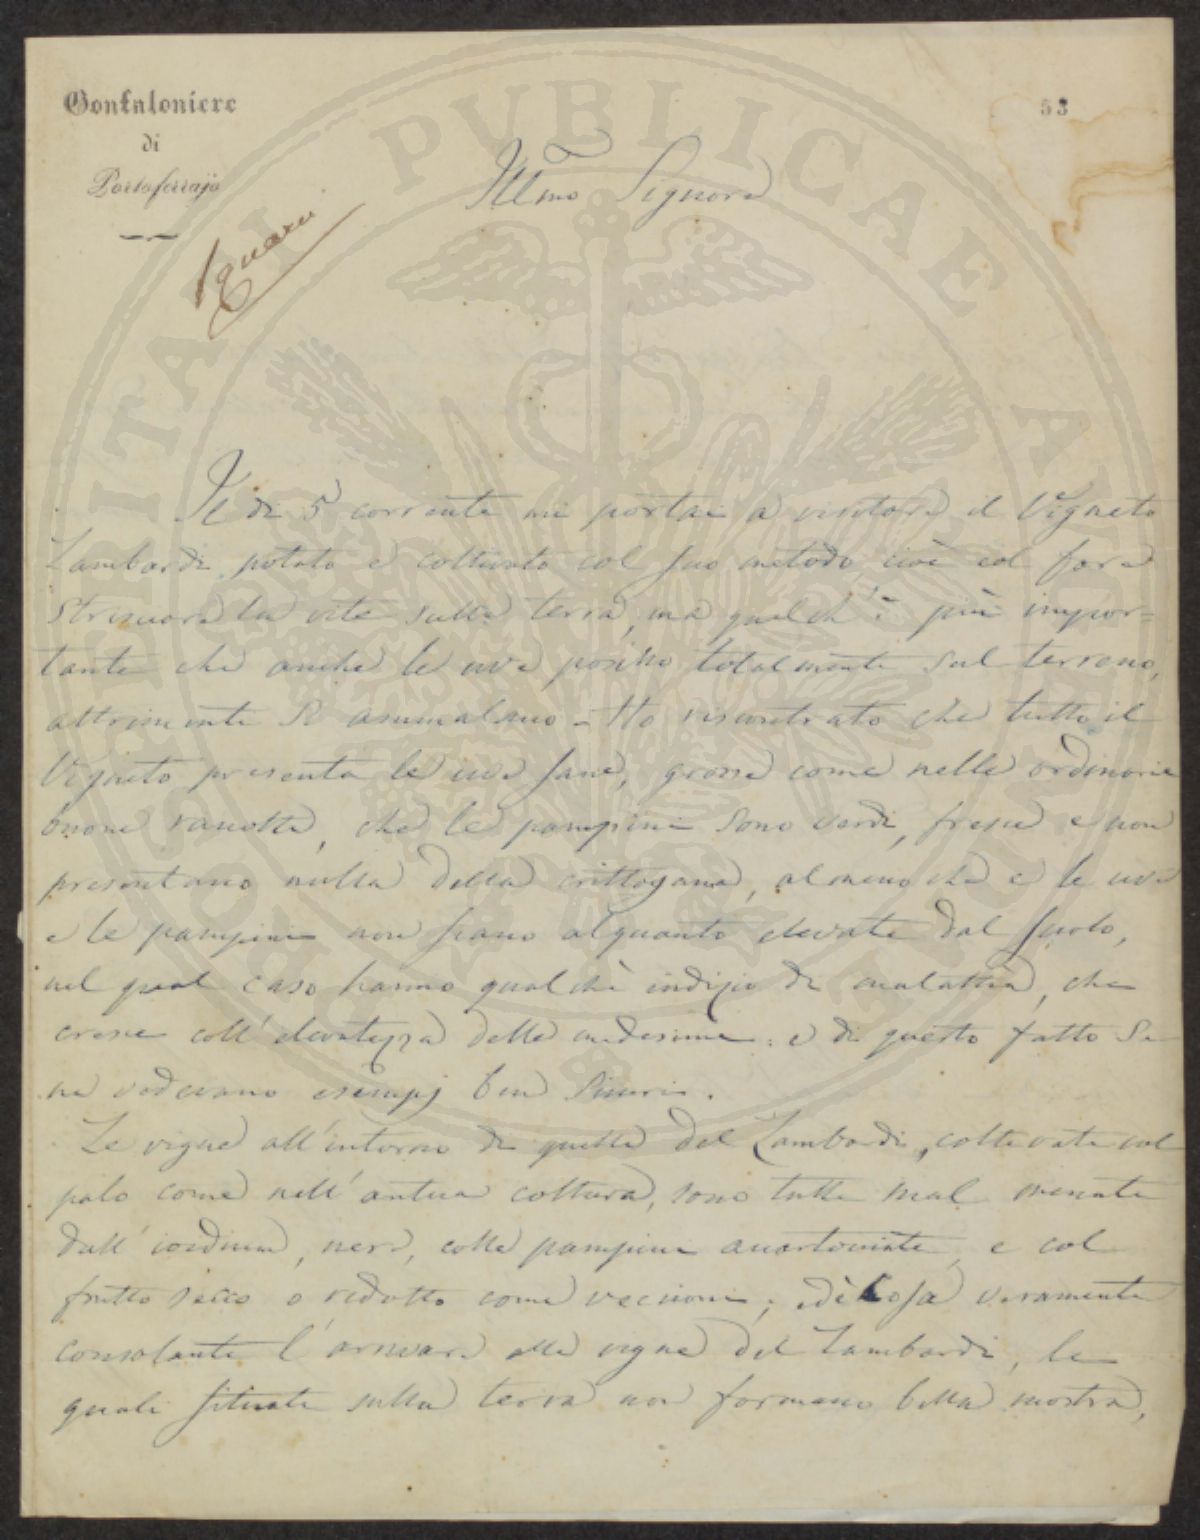 Gonfaloniere
di
Portoferrajo
53
Illmo Signore
Il dì 5 corrente mi portai a visitare il Vigneto
Lambardi, potato e coltivato col suo metodo, cioè col fare
strisciare la vite sulla terra, ma quel ch'è più impor=
tante che anche le uve posino totalmente sul terreno,
altrimenti si ammalano - Ho riscontrato che tutto il
Vigneto presenta le uve sane, grosse come nelle ordinarie
buone raccolte, che le pampini sono verdi, fresche e non
presentano nulla della crittogama, almeno che e le uve
e le pampini non siano alquanto elevate dal suolo,
nel qual caso hanno qualche indizio di malattia, che
cresce coll'elevatezza delle medesime: e di questo fatto se
ne vedevano esempj ben sicuri.
Le vigne all'intorno di quelle del Lambardi, coltivate col
palo come nell'antica coltura, sono tutte mal menate
dall' nere, colle pampini accartocciate, e col
frutto secco o ridotto come ; ed è cosa veramente
consolante l'arrivare alle vigne del Lambardi, le
quali situate sulla terra non formano bella mostra,
PUBLICAE